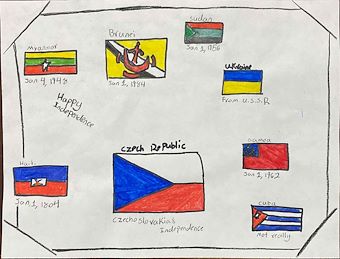 Sudan
Jan 1, 1956
Brunei
Jan 1, 1984
Myanmar
Jan 4, 1948
Ukraine
From U.S.S.R
Happy
Independence
Samoa
Jan 1, 1962
Czech Republic
Czechoslovakias
Independence
Haiti
Jan 1, 1804
Cuba
Not really